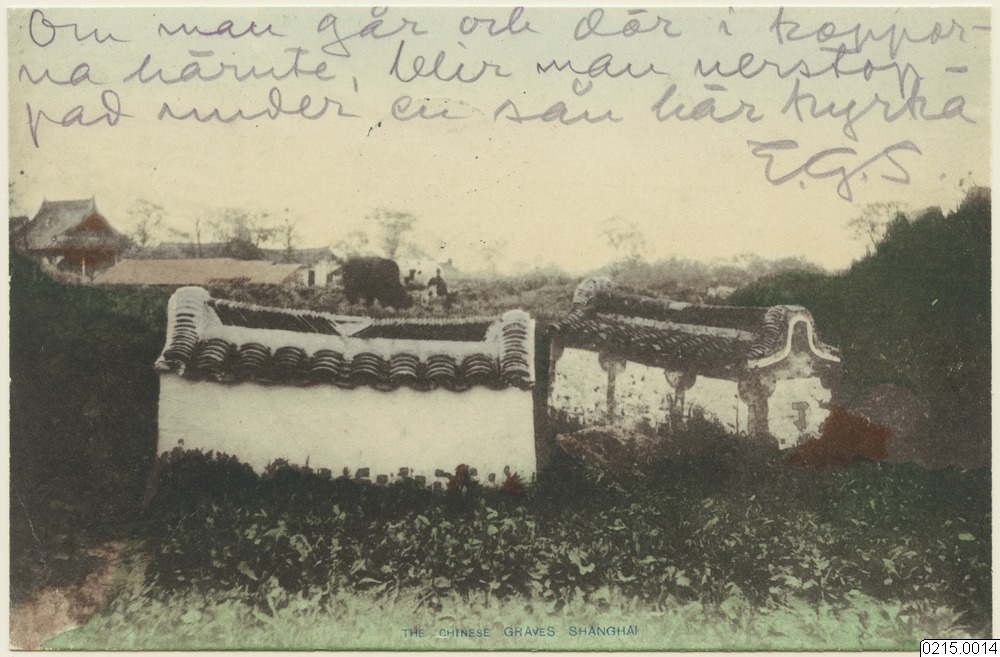 Om man går och dör i koppor-
na härute, blir man nerstop-
pad under en sån här kyrka
E.G.S.
THE CHINESE GRAVES SHANGHAI
0215.0014